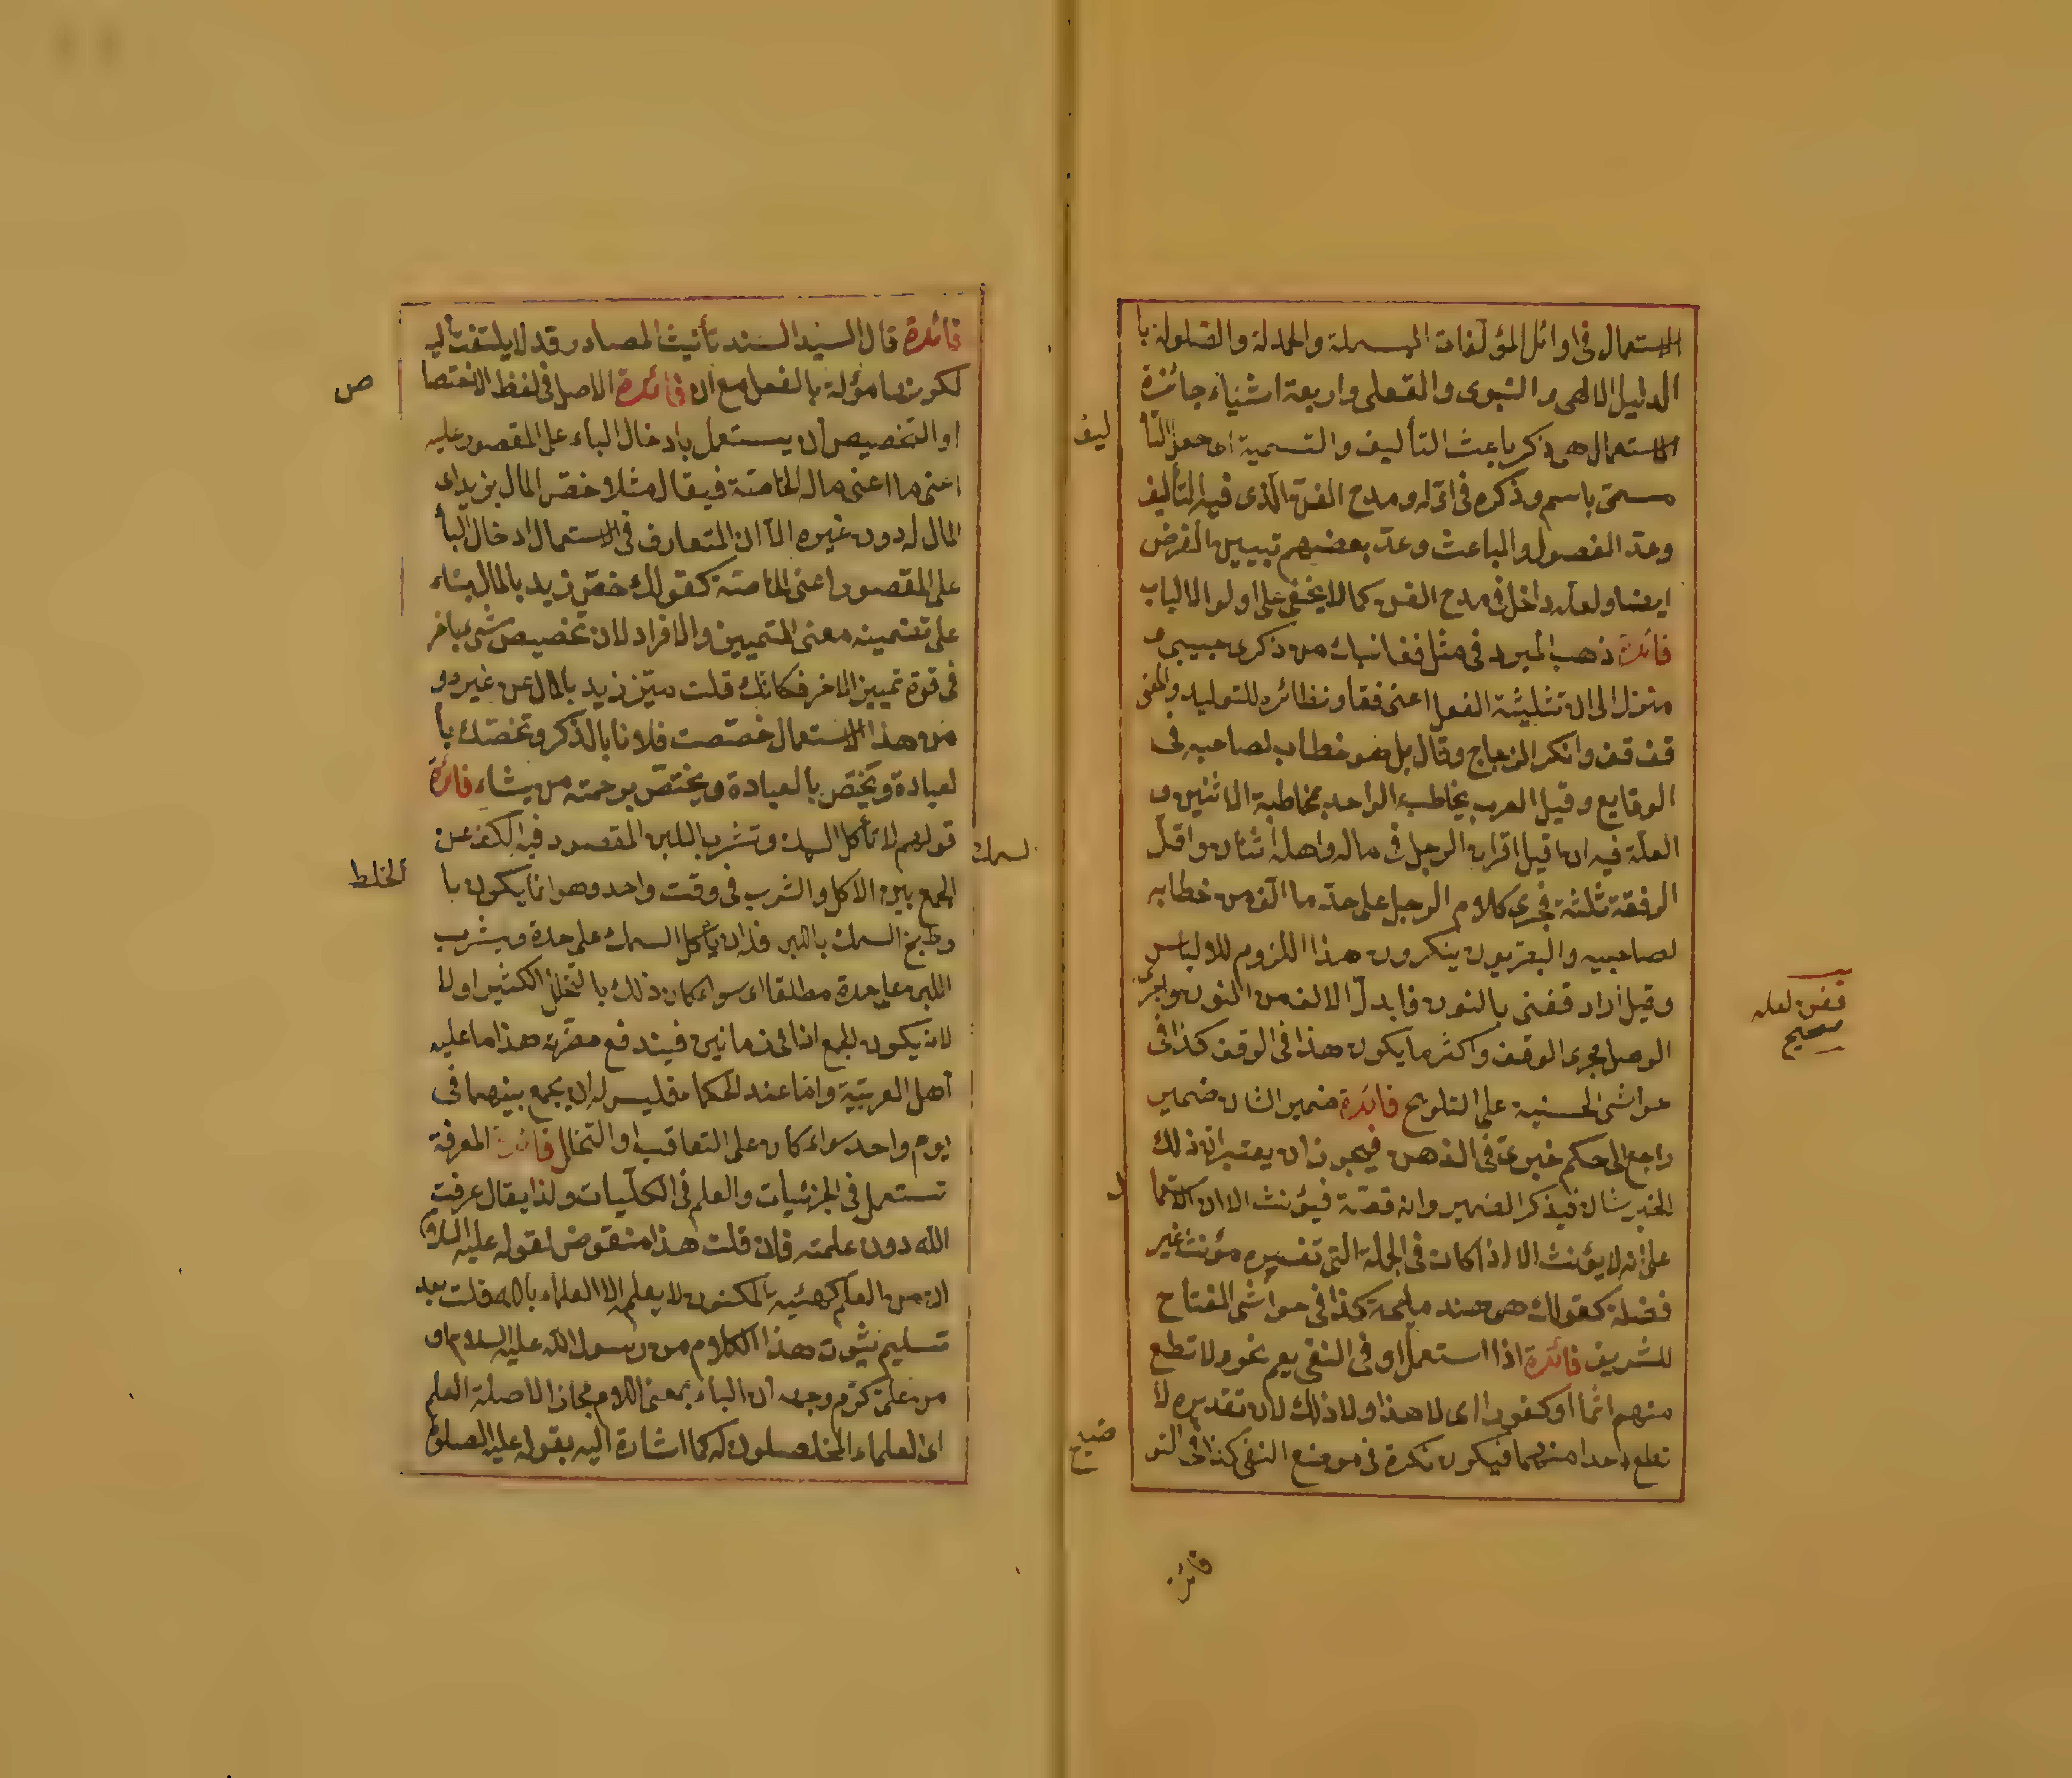 الاستعمال فى اوائل المؤلفات البسملة والحمدلة والصلولة با
الدليل الالهى والنبوى والفعلى واربعة اشياء جائزة
الاستعمال هى ذكر باعث التأليف والتسمية اى جعل التأ
ليف
مسمى باسم وذكره فى اوله ومدح الفن الذى فيه التأليف
وعد الفصول والمباعث وعد بعضهم تبيين الغرض
ايضا ولعله داخل فى مدح الفن كما لا يخفى على اولو الالباب
فائدة ذهب المبرد فى مثل قفا نبك من ذكرى حبيبى و
منزل الى ان تثنية الفعل اعنى قفا ونظائره للتوليد والمعنى
قف قف وانكر الزجاج وقال بل هو خطاب لصاحبه فى
الوقايع وقيل العرب يخاطب الواحد بمخاطبة الاثنين و
العلة فيه ان قيل اقران الرجل فى ماله واهله اثنان واقل
الرفقة ثلثة فجرى كلام الرجل على حد ما الف من خطابه
لصاحبيه والبصريون ينكرون هذا اللزوم للالباس
وقيل اراد قفنى بالنون فابدل الالف من النون واجرى
قفن لعله
صحيح
الوصل مجرى الوقف واكثر ما يكون هذا فى الوقف كذا فى
حواشى الحسنية على التلويح فائدة ضمير الشان ضمير
راجع الى حكم خبرى فى الذهن فيجوز ان يعتبر ان ذلك
الخبر شان فيذكر الضمير وانه قصة فيؤنث الا ان الاستعما
ل
على انه لا يؤنث الا اذا كان فى الجملة التى تفسيره مؤنث غير
فضلة كقولك هى هند مليحة كذا فى حواشى المفتاح
للشريف فائدة اذا استعمل او فى النفى يعم نحو ولا تطع
منهم اثما او كفورا اى لا هذا ولا ذلك لان تقديره لا
تطع احدا منهما فيكون نكرة فى موضع النفى كذا فى التو
ضيح
فائدة
فائدة قال السيد السند تأنيث المصادر قد لا يلتفت اليه
لكونها مؤلة بالفعل مع ان فائدة الاصل فى لفظ الاختصا
ص
او التخصيص ان يستعمل بادخال الباء على المقصور عليه
اعنى ما اعنى ماله الخاصة فيقال مثلا خص المال بزيد اى
المال له دون غيره الا ان المتعارف فى الاستعمال ادخال البأ
على المقصور اعنى الخاصة كقولك خص زيد بالمال بناء
على تضمينه معنى التمييز والافراد لان تخصيص شئ باخر
فى قوة تمييز الاخر فكانك قلت ميز زيد بالمال عن غيره و
من هذا الاستعمال خصصت فلانا بالذكر وتخصك با
لعبادة ويختص بالعبادة ويختص برحمته من يشاء فائدة
قولهم لا تأكل السمك وتشرب اللبن المقصود فيه الكف عن
السمك
الجمع بين الاكل والشرب فى وقت واحد وهو انما يكون با
لخلط
وطبخ السمك باللبن فله ان يأكل السمك على حدة ويشرب
اللبن على حدة مطلقا اى سواء كان ذلك بالتخلل الكثير اولا
لانه يكون الجمع اذا فى زمانين فيندفع مضرته هذا ما عليه
اهل العربية واما عند الحكماء فليس له ان يجمع بينهما فى
يوم واحد سواء كان على التعاقب او التخلل فائدة المعرفة
تستعمل فى الجزئيات والعلم فى الكليات ولذا يقال عرفت
الله دون علمته فان قلت هذا منقوض لقوله عليه السلام
ان من العلم كهيئة المكنون لا يعلم الا العلماء بالله قلت بعد
تسليم ثبوت هذا الكلام من رسول الله عليه السلام او
من على كرم وجهه ان الباء بمعنى اللام مجاز الاصلة العلم
اى العلماء المخلصلون له كما اشارة اليه بقوله عليه الصلوة